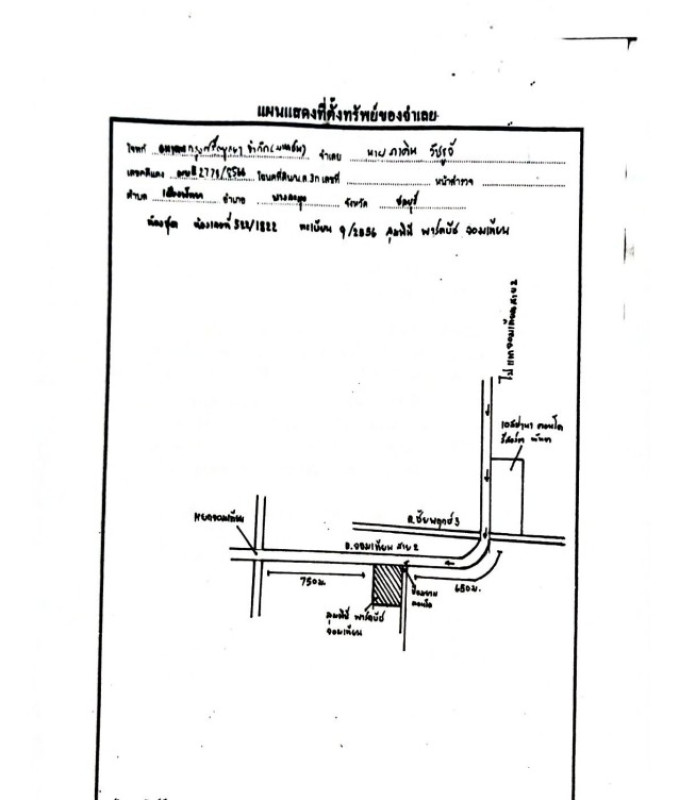 แผนแสดงที่ตั้งทรัพย์ของจำเลย
โจทก์ ธนาคารกรุงศรีอยุธยา จำกัด(มหาชน) จำเลย นาย
เลขคดีแดง โฉนดที่ดิน/น.ส.3ก เลขที่ หน้าสำรวจ
ตำบล อำเภอ บางละมุง จังหวัด ชลบุรี
ห้องชุด ห้องเลขที่ 522/1822 ทะเบียน 9/2556 ลุมพินี พาร์คบีช จอมเทียน
ไป แยกจอมเทียนสาย 2
คอนโด
รีสอร์ท พัทยา
ถ.ชัยพฤกษ์ 3
แยกจอมเทียน
ถ.จอมเทียน สาย 2
750 ม.
650 ม.
ลุมพินี พาร์คบีช
จอมเทียน
คอนโด